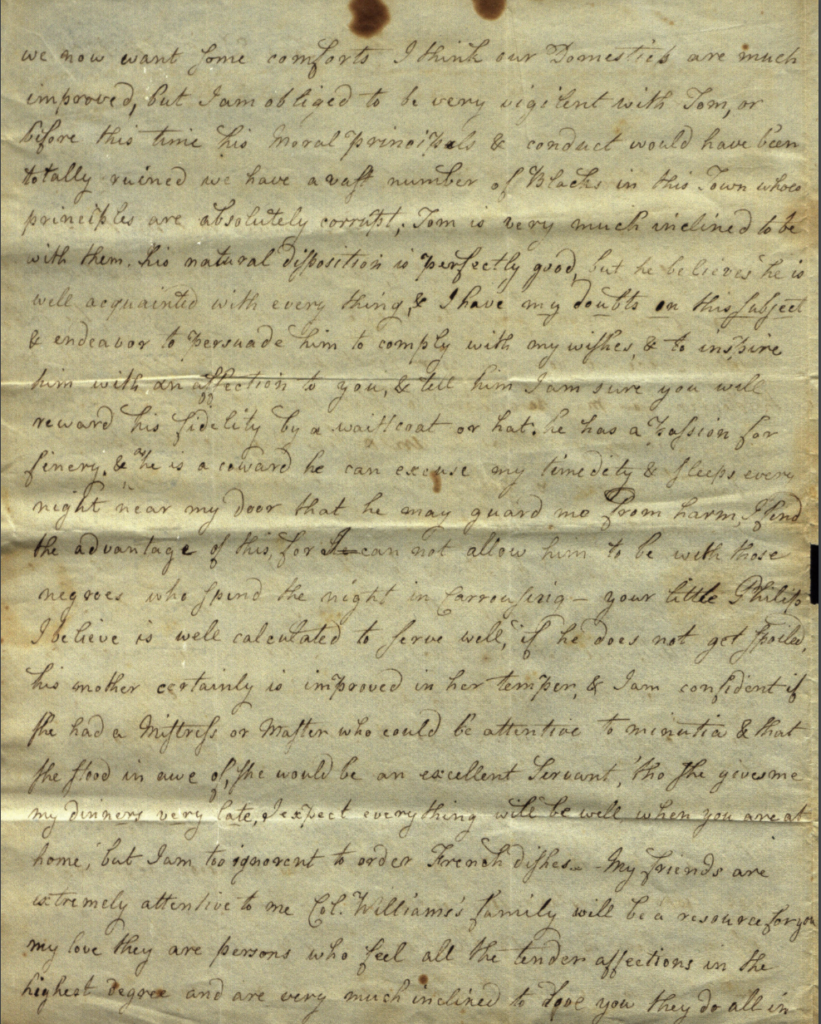 we now want some comforts I think our Domesticks are much
improved, but I am obliged to be very vigilent with Tom, or
before this time his Moral principals & conduct would have been
totally ruined we have a vast number of Blacks in this Town whose
principles are absolutely corrupt; Tom is very much inclined to be
with them. his natural disposition is perfectly good, but he believes he is
well acquainted with every thing, & I have my doubts on this subject
& endeavor to persuade him to comply with my wishes, & to inspire
him with an affection to you, & tell him I am sure you will
reward his fidelity by a waistcoat or hat. he has a passion for
finery. & he is a coward he can excuse my timedity & sleeps every
night near my door that he may guard me from harm, I find
the advantage of this, for I can not allow him to be with those
negroes who spend the night in Carrousing — your little Philip
I believe is well calculated to serve well, if he does not get spoiled,
his mother certainly is improved in her temper, & I am confident if
she had a Mistress or Master who could be attentive to minutia & that
she stood in awe of, she would be an excellent Servant, 'tho she gives me
my dinners very late, I expect everything will be well when you are at
home, but I am too ignorent to order French dishes — My friends are
extremely attentive to me Col. Williams's family will be a resource for you
my love they are persons who feel all the tender affections in the
highest degree and are very much inclined to love you they do all in-